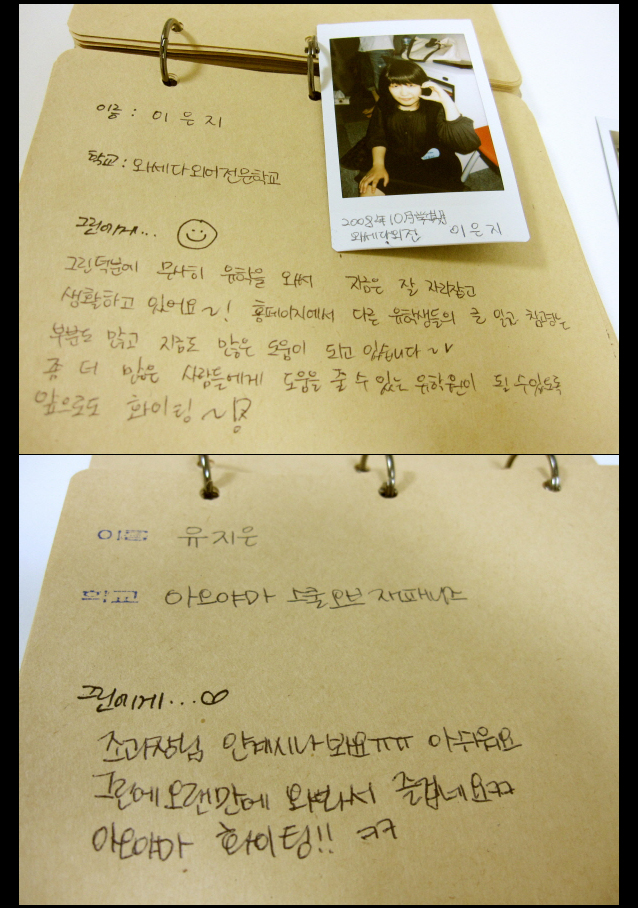 이름 : 이 은 지
학교 : 와세다외어전문학교
그린에게...
그린덕분에 무사히 유학을 와서 지금은 잘 자리잡고
생활하고 있어요~! 홈페이지에서 다른 유학생들의 글 읽고 참고하는
부분도 많고 지금도 많은 도움이 되고 있습니다~
좀 더 많은 사람들에게 도움을 줄 수 있는 유학원이 될 수있도록
앞으로도 화이팅~!
2008年 10月
와세다외전 이은지
이름 유지은
학교 아오야마 스쿨오브 재패니즈
그린에게...♡
조과장님 안계시나봐요ㅠㅠ 아쉬워요
그린에 오랜만에 와봐서 즐겁네요ㅋㅋ
아오야마 화이팅!! ㅋㅋ